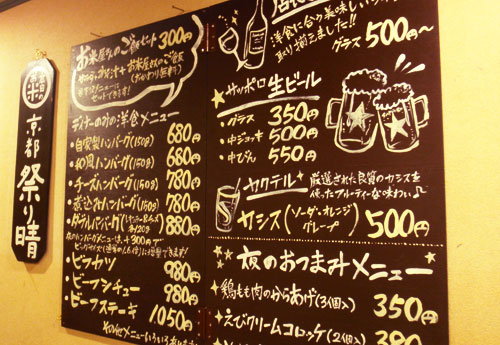 京都
祭り晴
お米屋さんのご飯セット 300円
お米屋さんのご飯
(おかわり無料)
セットできます!
ディナーのみの洋食メニュー
・自家製ハンバーグ(150g) 680円
・和風ハンバーグ(150g) 680円
・チーズハンバーグ(150g) 780円
・煮込みハンバーグ(150g) 780円
・ダブルハンバーグ 880円
各120g
夜のハンバーグメニューは、+300円で
・ビフカツ 980円
・ビーフシチュー 980円
・ビーフステーキ 1050円
洋食に合う美味しい
取り揃えました!!
グラス 500円〜
サッポロ生ビール
・グラス 350円
・中ジョッキ 500円
・中びん 550円
カクテル
厳選された良質のカシスを
使ったフルーティーな味わい♪
カシス(ソーダ・オレンジ
グレープ) 500円
夜のおつまみメニュー
・鶏もも肉のからあげ(3個入) 350円
・えびクリームコロッケ(2個入) 380